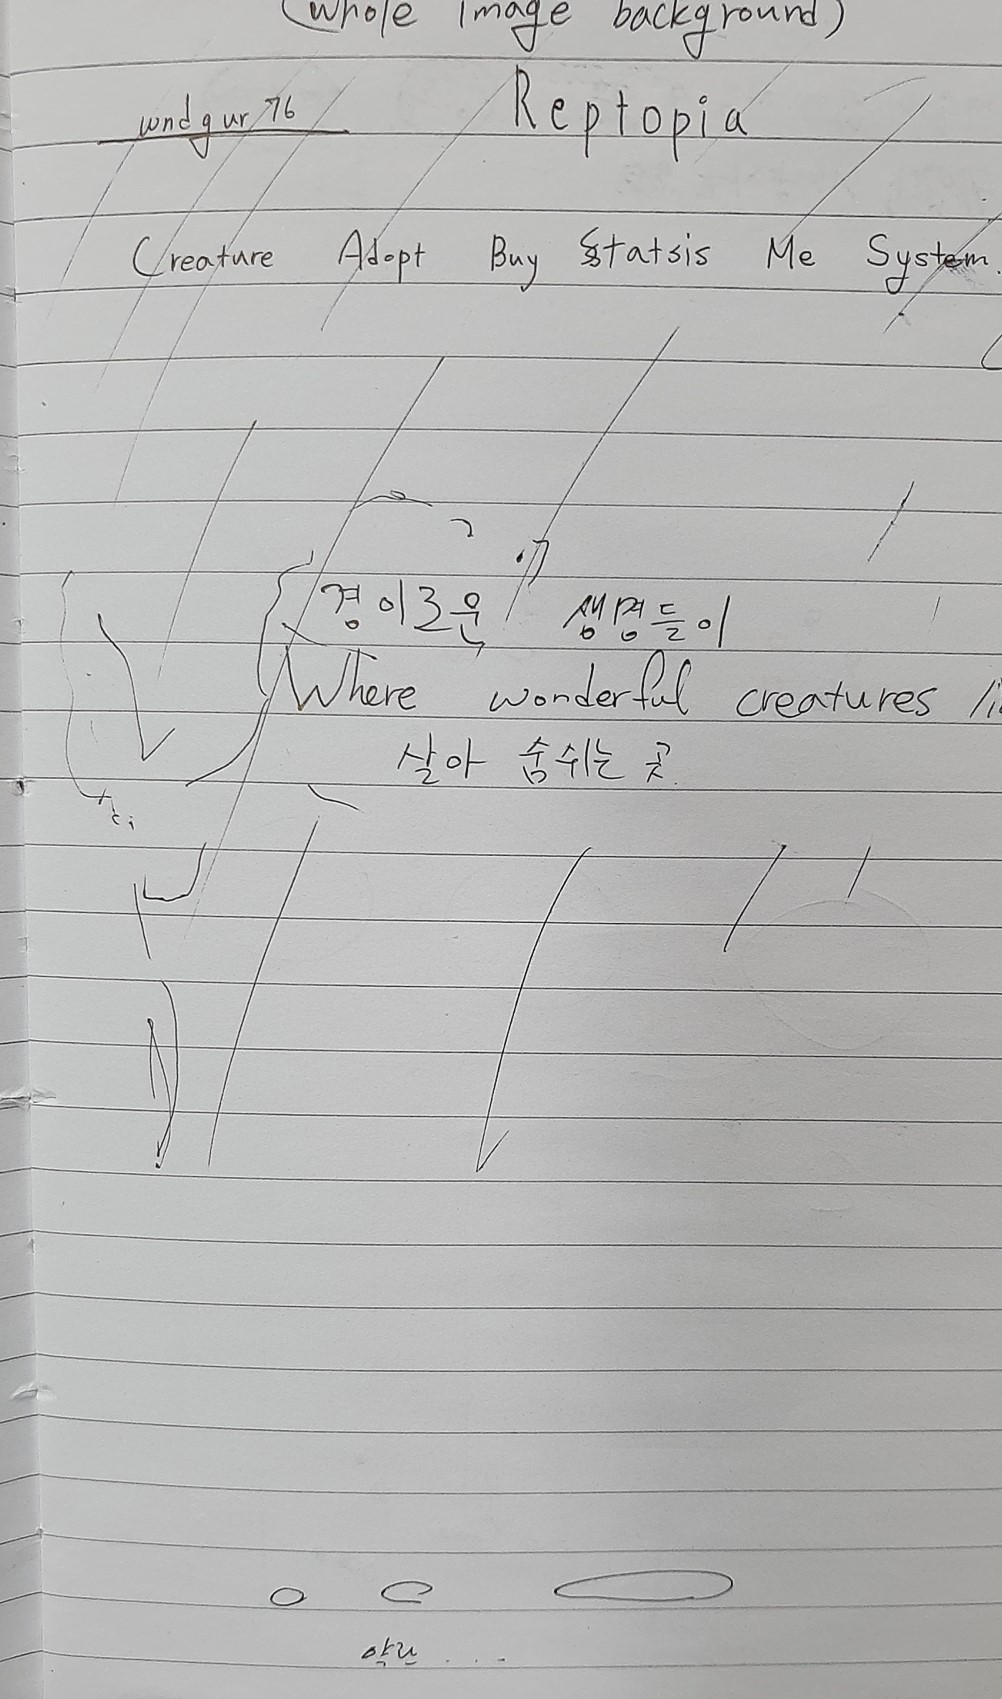 (whole image background)
wndgur76 Reptopia
Creature Adopt Buy Statsis Me System.
경이로운 생명들이
Where wonderful creatures
살아 숨쉬는 곳.
약간 . . .